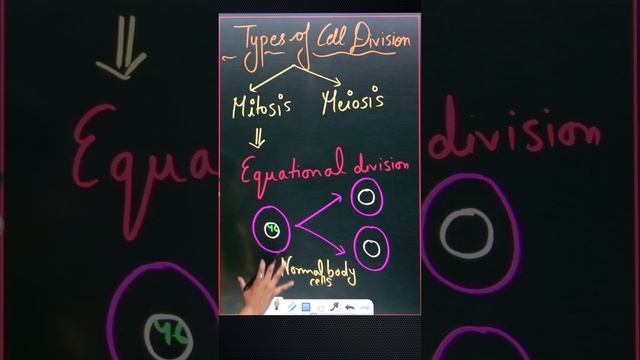 Types of Cell Division
Mitosis Meiosis
Equational division
46
Normal body
cells